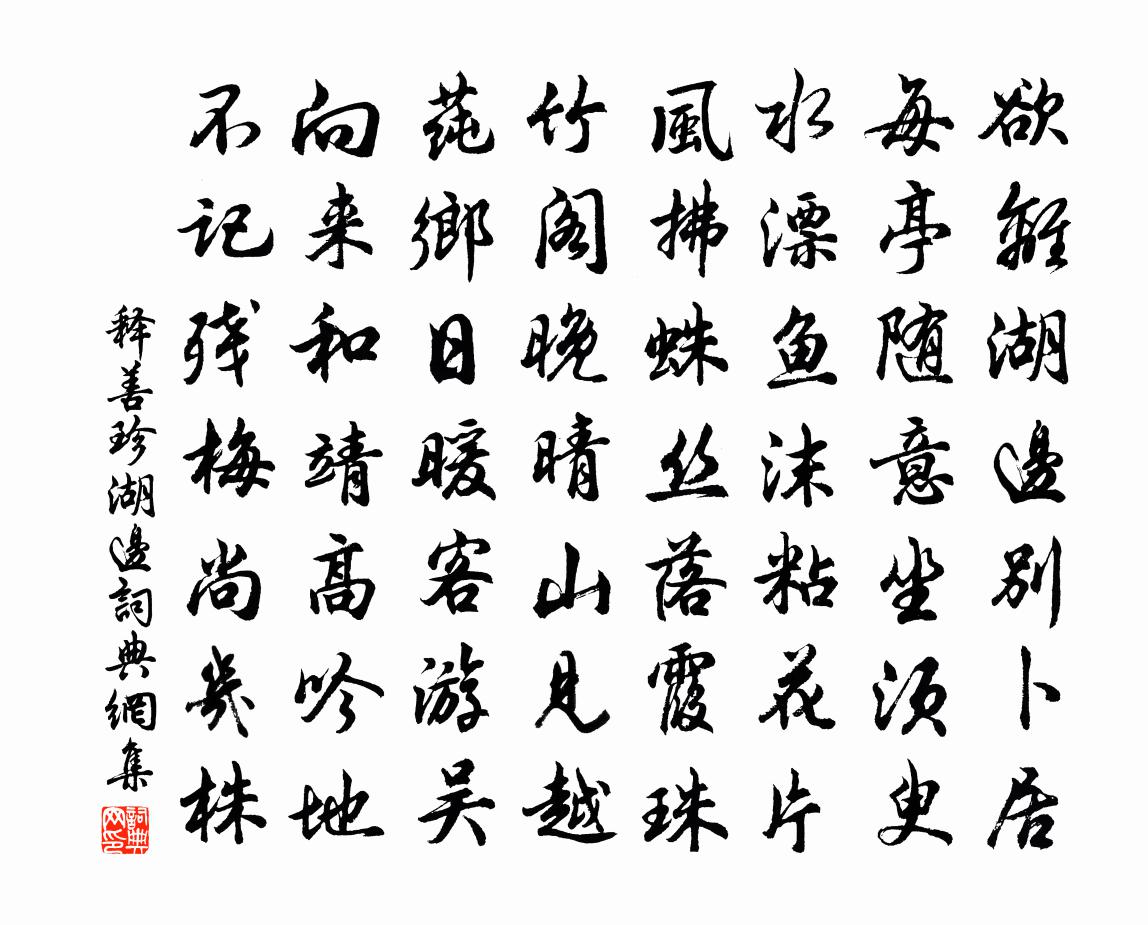 欲離湖邊别卜居
每亭随意坐须臾
水漂鱼沫粘花片
風拂蛛丝落霞珠
竹阁晚晴山見越
莼鄉日暖客游吴
向来和靖高吟地
不记残梅尚幾株
释善珍湖邊詞典網集
詞典网印